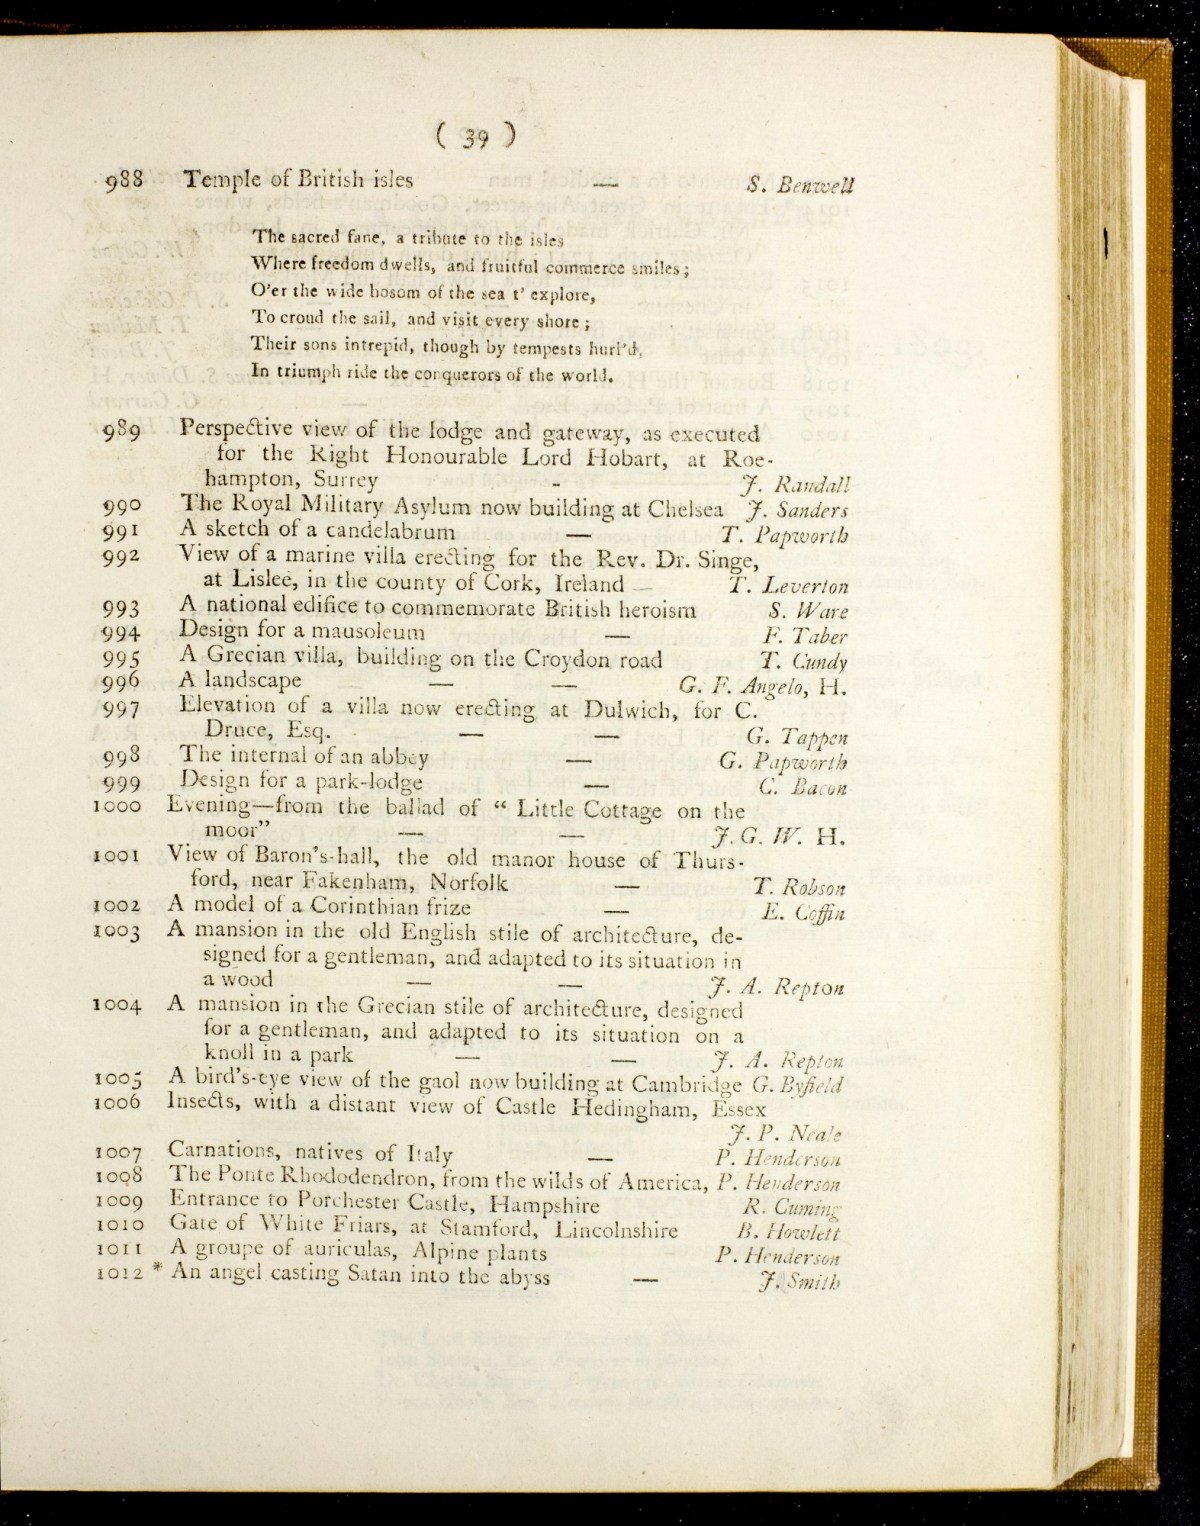 ( 39 )
988 Temple of British isles — S. Benwell
The sacred fane, a tribute to the isles
Where freedom dwells, and fruitful commerce smiles;
O'er the wide bosom of the sea t' explore,
To croud the sail, and visit every shore;
Their sons intrepid, though by tempests hurl'd,
In triumph ride the conquerors of the world.
989 Perspective view of the lodge and gateway, as executed
for the Right Honourable Lord Hobart, at Roe-
hampton, Surrey - J. Randall
990 The Royal Military Asylum now building at Chelsea J. Sanders
991 A sketch of a candelabrum — T. Papworth
992 View of a marine villa erecting for the Rev. Dr. Singe,
at Lislee, in the county of Cork, Ireland — T. Leverton
993 A national edifice to commemorate British heroism S. Ware
994 Design for a mausoleum — F. Taber
995 A Grecian villa, building on the Croydon road T. Cundy
996 A landscape — — G. F. Angelo, H.
997 Elevation of a villa now erecting at Dulwich, for C.
Druce, Esq. — — G. Tappen
998 The internal of an abbey — G. Papworth
999 Design for a park-lodge — C. Bacon
1000 Evening—from the ballad of “ Little Cottage on the
moor” — — J. G. W. H.
1001 View of Baron's-hall, the old manor house of Thurs-
ford, near Fakenham, Norfolk — T. Robson
1002 A model of a Corinthian frize — E. Coffin
1003 A mansion in the old English stile of architecture, de-
signed for a gentleman, and adapted to its situation in
a wood — — J. A. Repton
1004 A mansion in the Grecian stile of architecture, designed
for a gentleman, and adapted to its situation on a
knoll in a park — — J. A. Repton
1005 A bird's-eye view of the gaol now building at Cambridge G. Byfield
1006 Insects, with a distant view of Castle Hedingham, Essex
J. P. Neale
1007 Carnations, natives of Italy — P. Henderson
1008 The Ponte Rhododendron, from the wilds of America, P. Henderson
1009 Entrance to Porchester Castle, Hampshire R. Cuming
1010 Gate of White Friars, at Stamford, Lincolnshire B. Howlett
1011 A groupe of auriculas, Alpine plants P. Henderson
1012 * An angel casting Satan into the abyss — J. Smith